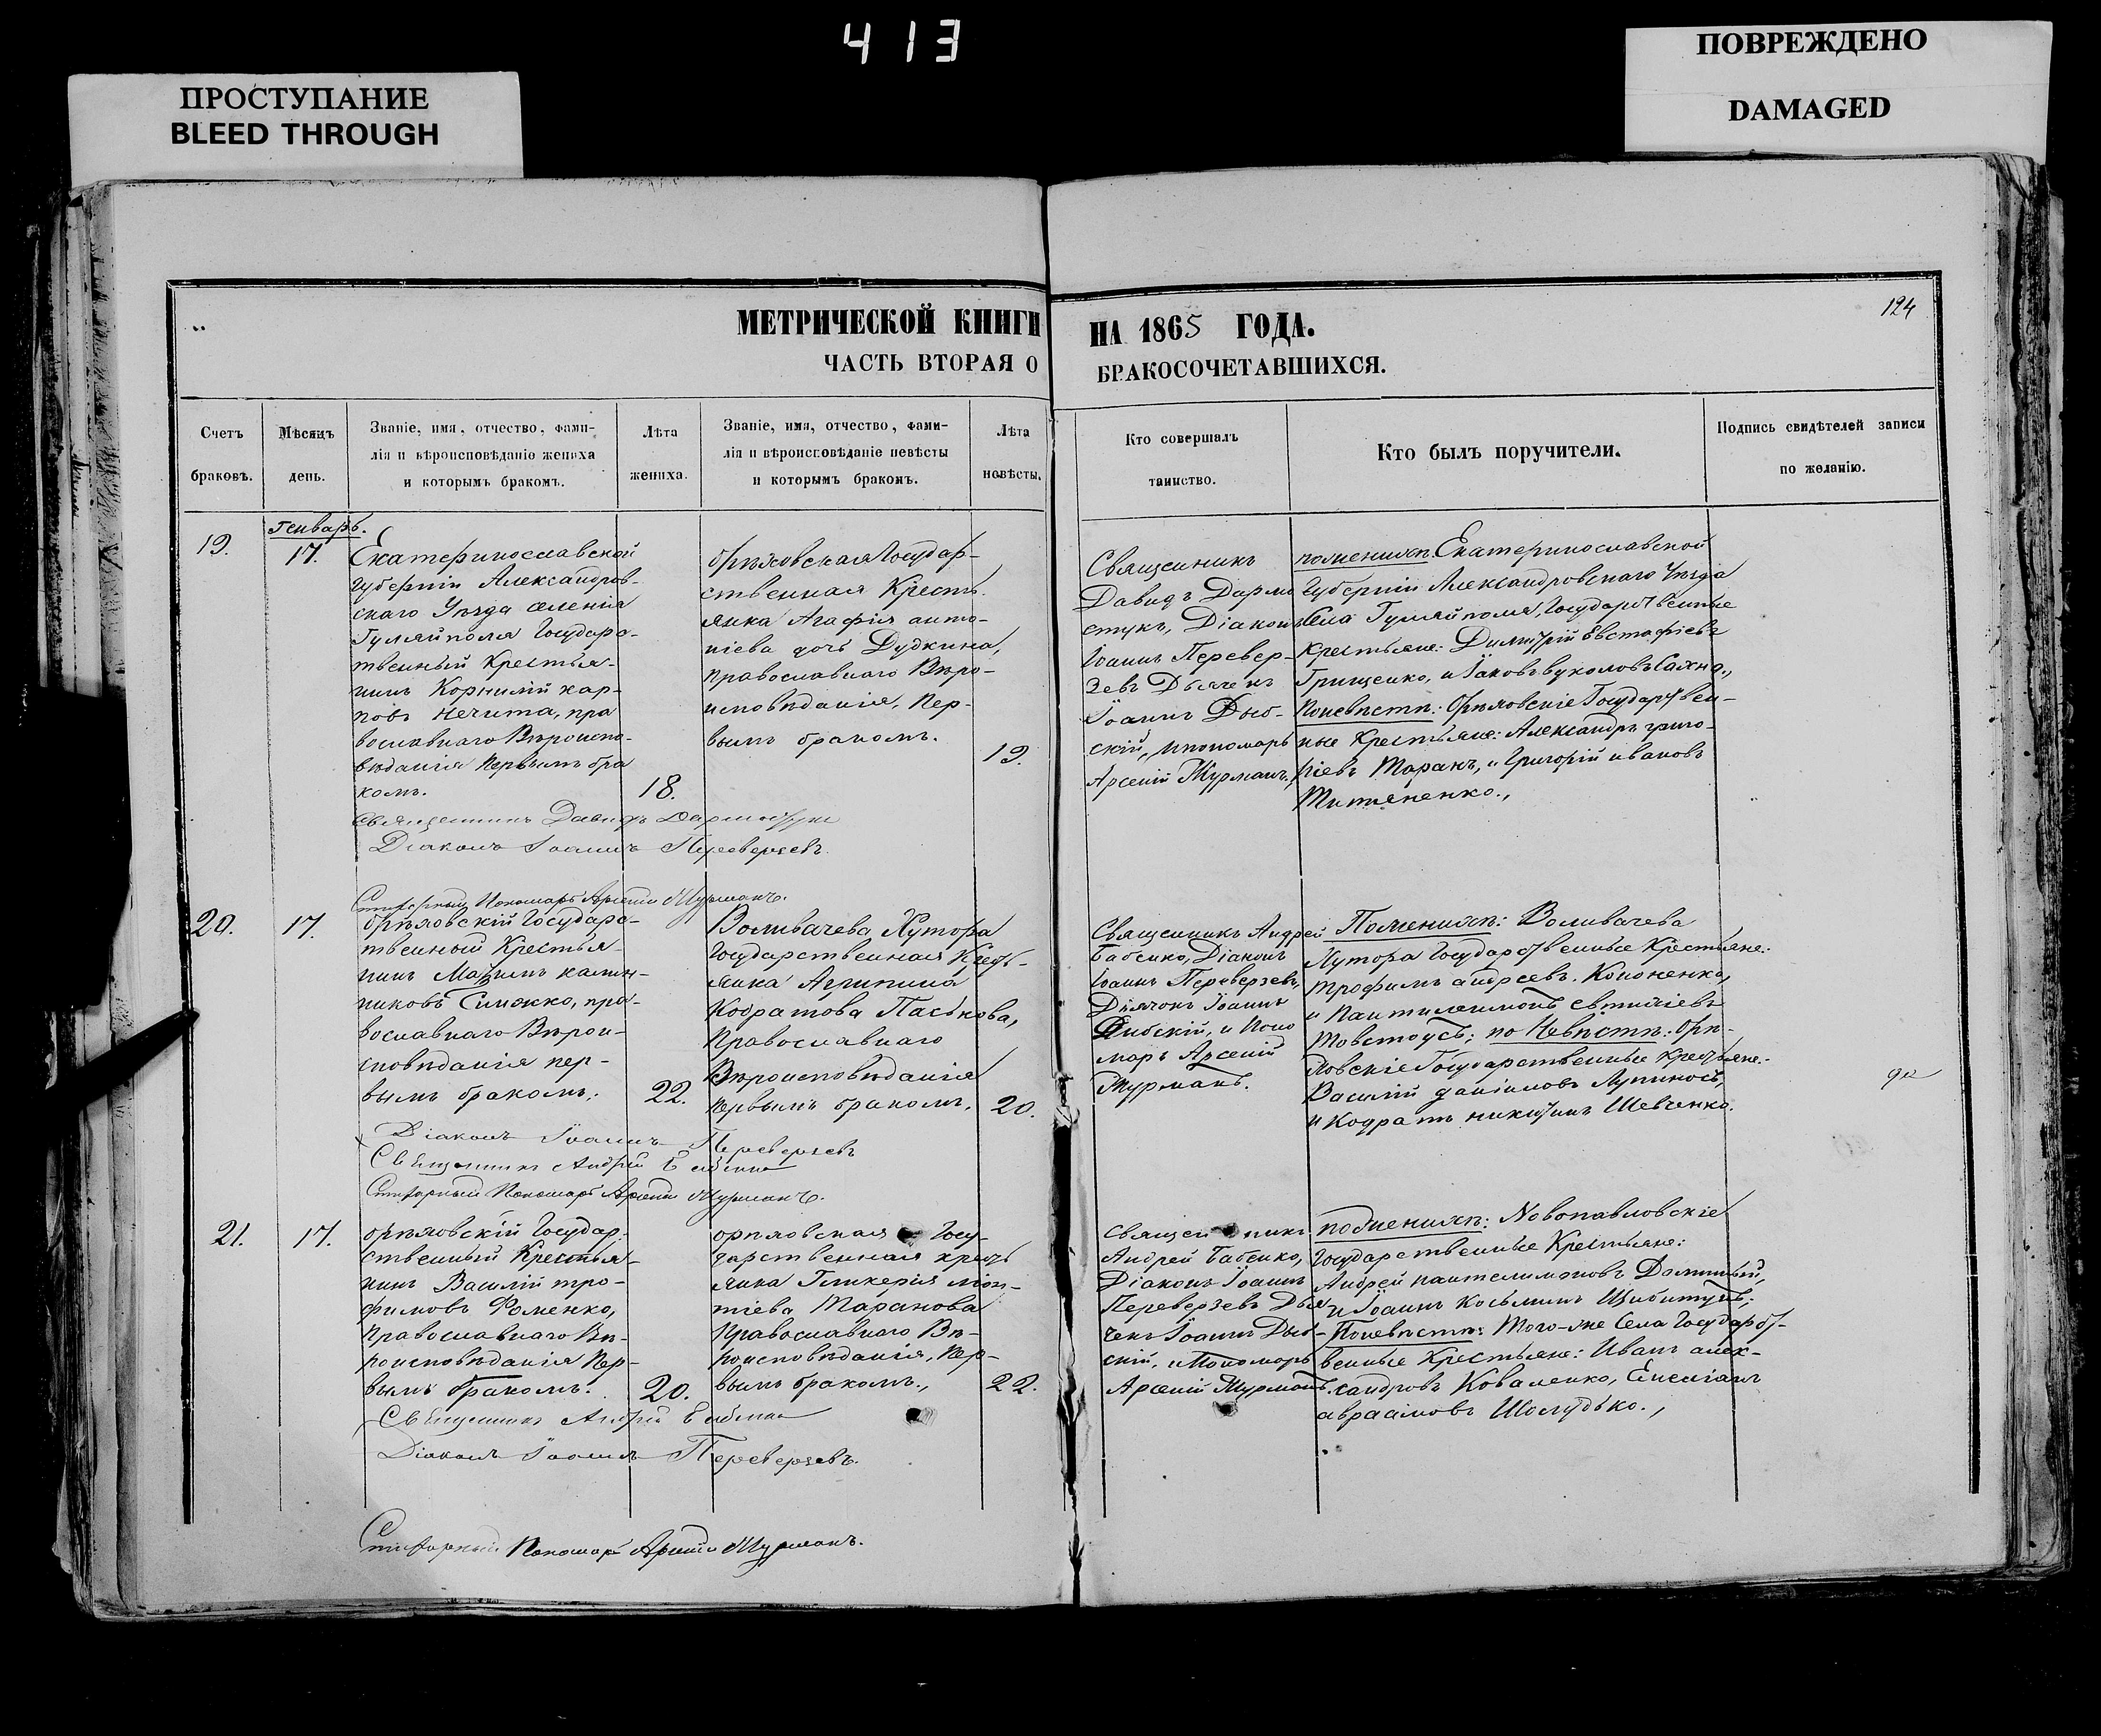 413
ПРОСТУПАНИЕ
BLEED THROUGH
ПОВРЕЖДЕНО
DAMAGED
124
МЕТРИЧЕСКОЙ КНИГИ НА 1865 ГОДА.
ЧАСТЬ ВТОРАЯ О БРАКОСОЧЕТАВШИХСЯ.
Счетъ
браковъ.
Мѣсяцъ
день.
Званіе, имя, отчество, фами-
лія и вѣроисповѣданіе жениха
и которымъ бракомъ.
Лѣта
жениха.
Званіе, имя, отчество, фами-
лія и вѣроисповѣданіе невѣсты
и которымъ бракомъ.
Лѣта
невѣсты.
Кто совершалъ
таинство.
Кто былъ поручители.
Подпись свидѣтелей записи
по желанію.
19.
Генварь.
17.
Екатеринославской
губерніи Александров-
скаго Уѣзда селенія
Гуляйполя Государс-
твенный Крестья-
нинъ Корнилій кар-
повъ Нечита, пра
вославнаго Вѣроиспо-
вѣданія первымъ бра
комъ.
18.
Орѣховская Государ-
ственная Кресть.
янка Агафія анто-
ніева дочь Дудкина,
православнаго Вѣро-
исповѣданія, Пер-
вымъ бракомъ.
19.
Священникъ
Давидъ Дармо
стукъ, Діаконъ
Іоаннъ Перевер-
зевъ Дьячекъ
Іоаннъ Дыб-
скій, и пономарь
Арсеній Журманъ.
поженихѣ: Екатеринославской
Губерніи Александровскаго Уѣзда
Села Гуляйполя, Государственные
Крестьяне: Димитрій Евстафіевъ
Грищенко, и Іаковъ вуколовъ Сахно.,
Поневѣстѣ: Орѣховскіе Государствен-
ные Крестьяне: Александръ григо-
ріевъ Таранъ, и Григорій ивановъ
Титяненко.,
Священникъ Давидъ Дармостукъ
Діаконъ Іоаннъ Переверзевъ
Стихарный Пономарь Арсеній Журманъ.
20.
17.
Орѣховскій Государс-
твенный Крестья-
нинъ Мазимъ калин-
никовъ Симокко, пра-
вославнаго Вѣрои-
сповѣданія пер-
вымъ бракомъ.
22.
Воливачева Хутора
Государственная Кресть-
янка Агрипина
Кодратова Паськова,
Православнаго
Вѣроисповѣданія
первымъ бракомъ,
20.
Священникъ Андрей
Бабенко, Діаконъ
Іоаннъ Переверзевъ,
Дьячокъ Іоаннъ
Дибскій, и Поно
марь Арсеній
Журманъ.
Поженихѣ: Воливачева
Хутора Государственные Крестьяне:
Трофимъ андреевъ. Кононенко,
и Пантилеимонъ евтихіевъ
Товстоусъ; по Невѣстѣ: Орѣ-
ховскіе Государственные крестьяне:
Василій даніиловъ Лупиносъ,
и Кодратъ никитинъ Шевченко.
Діаконъ Іоаннъ Переверзевъ
Священникъ Андрей Бабенко
Стихарный Пономарь Арсеній Журманъ.
21.
17.
Орѣховскій Государ-
ственный Крестья-
нинъ Василій тро-
фимовъ Фоменко,
Православнаго Вѣ-
роисповѣданія Пер-
вымъ бракомъ.
20.
орѣховская Госу-
дарственная кресть
янка Гликерія лѣон-
тіева Таранова
Православнаго Вѣ-
роисповѣданія, Пер-
вымъ бракомъ.,
22.
Священникъ
Андрей Бабенко,
Діаконъ Іоаннъ
Переверзевъ Дья-
чекъ Іоаннъ Дыб-
скій, и Пономарь
Арсеній Журманъ.
поженихѣ: Новопавловскіе
Государственные Крестьяне:
Андрей пантелимоновъ
и Іоаннъ Косьминъ
Поневѣстѣ: Того-же Села Государст-
венные Крестьяне: Иванъ алек-
сандровъ Коваленко,
авраамовъ Шолудько.,
Священникъ Андрей Бабенко
Діаконъ Іоаннъ Переверзевъ.
Стихарный Пономарь Арсеній Журманъ.